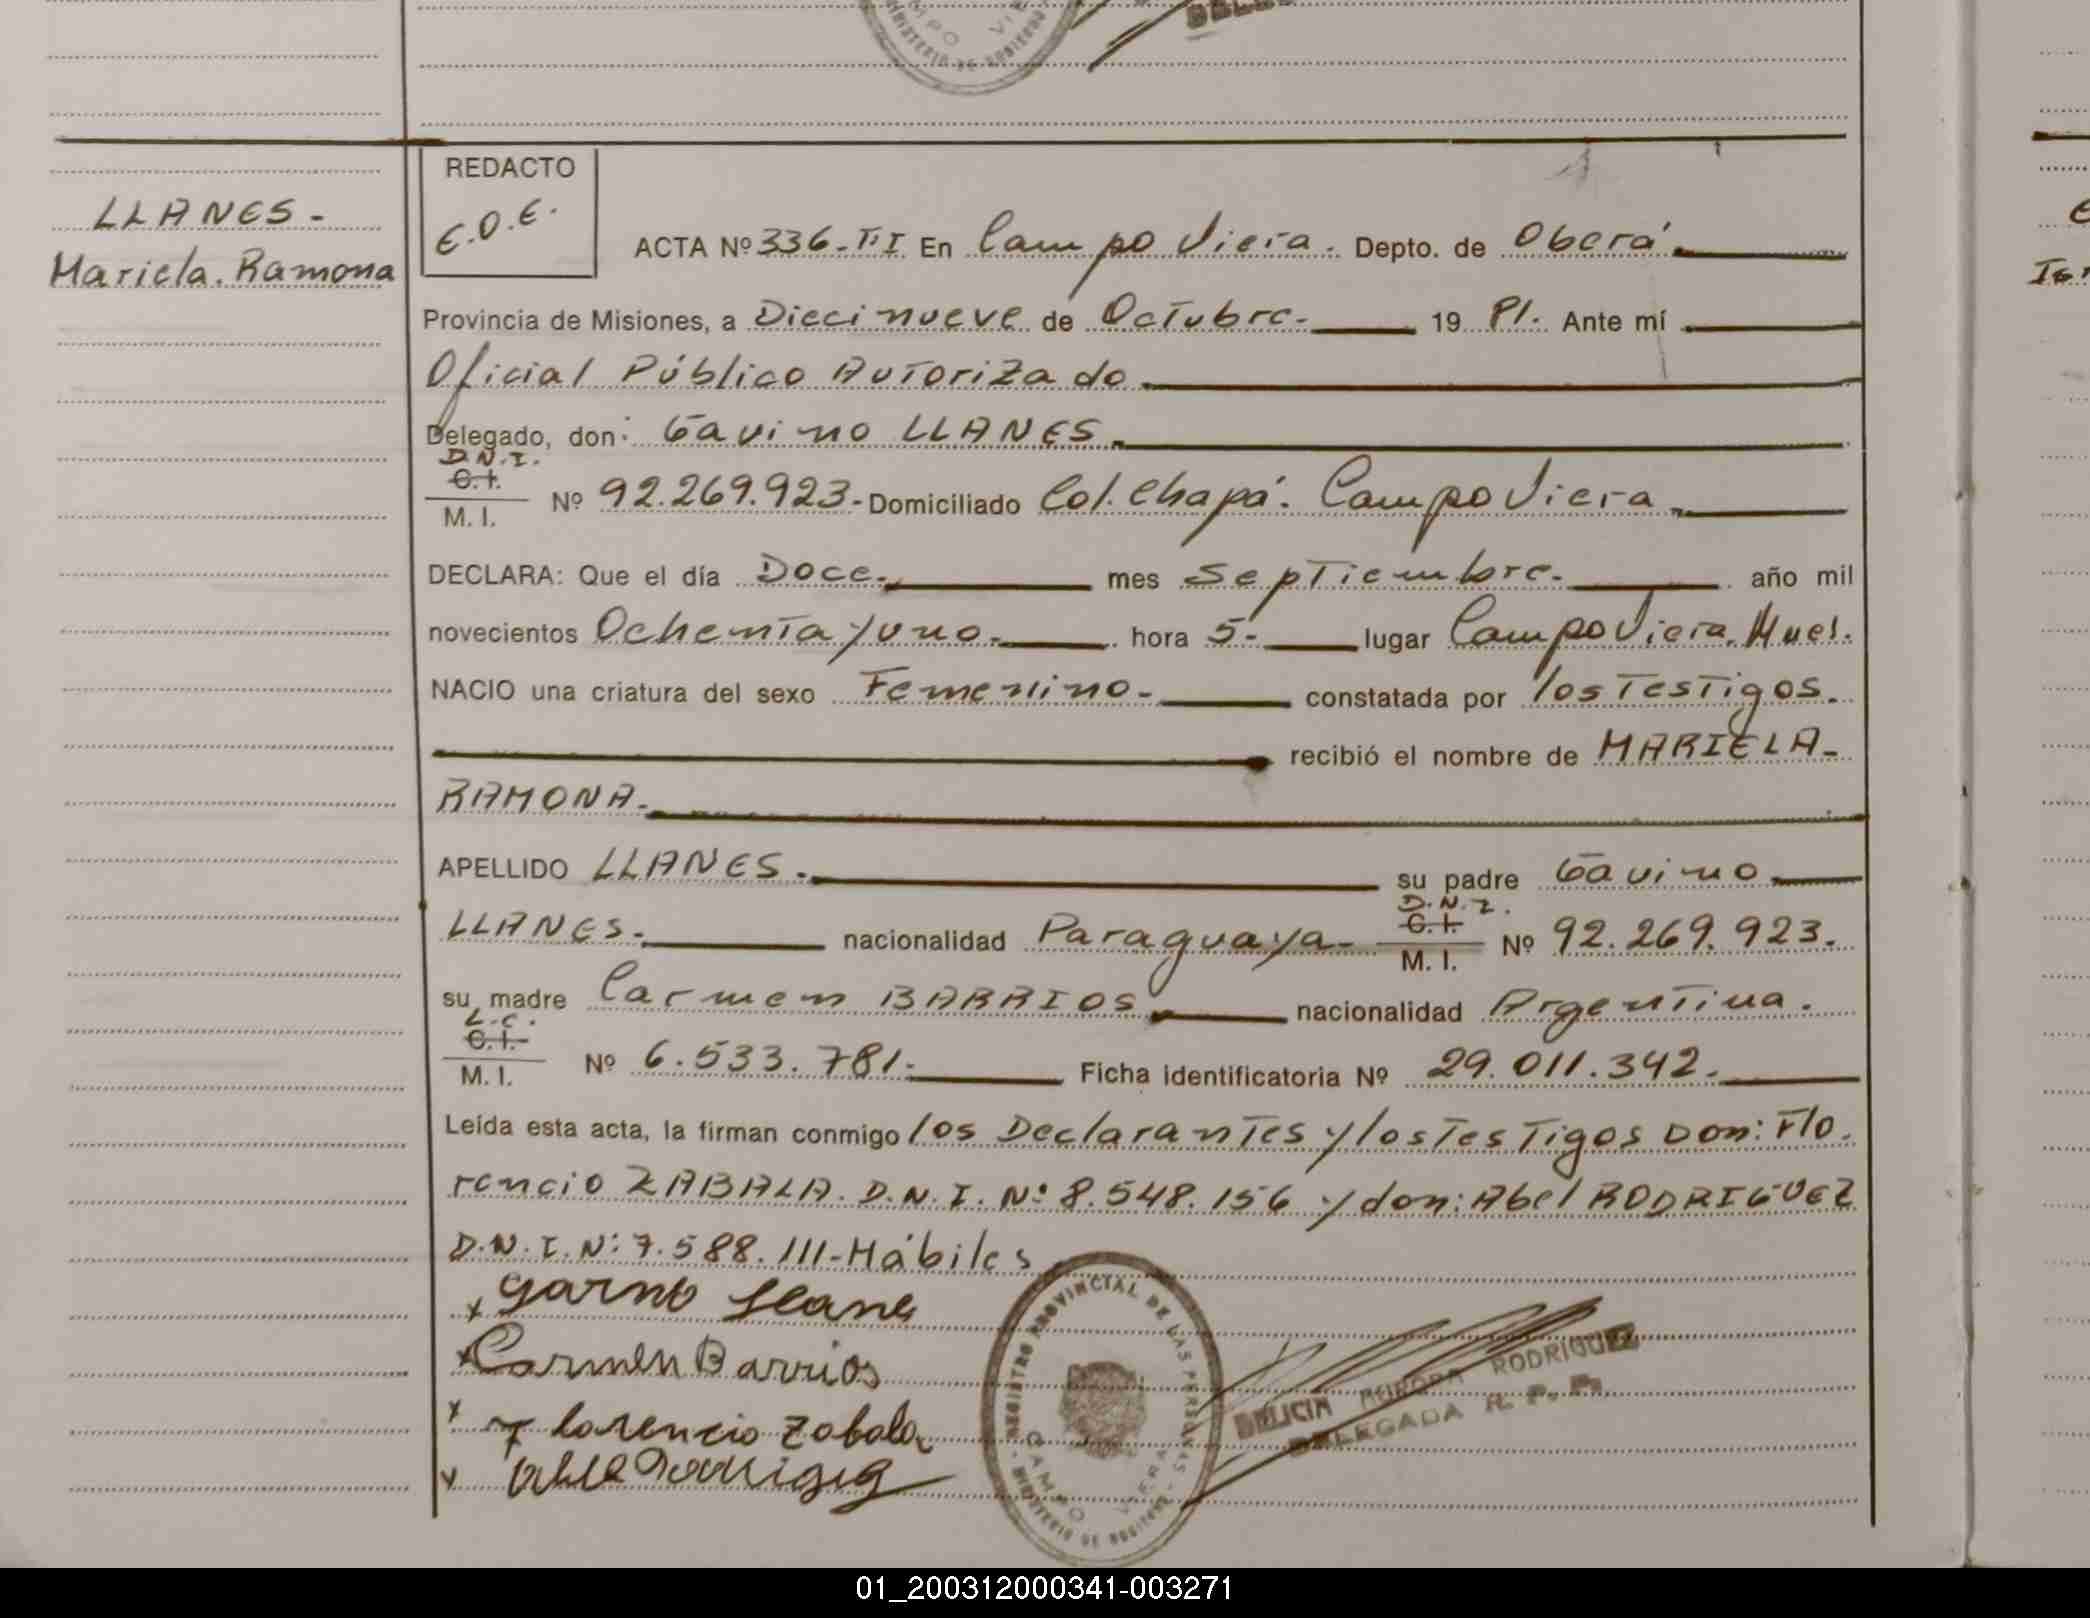 LLANES.-
Mariela. Ramona
REDACTO
E.O.E.
ACTA Nº 336-T.I En Campo Viera. Depto. de Oberá.
Provincia de Misiones, a Diecinueve de Octubre. 19 81. Ante mí
Oficial Público Autorizado
Delegado, don: Gavino LLANES.
D.N.I.
C.I.
M. I. Nº 92.269.923- Domiciliado Col. Chapá. Campo Viera
DECLARA: Que el día Doce. mes Septiembre. año mil
novecientos Ochenta y uno. hora 5- lugar Campo Viera. Mnes.
NACIO una criatura del sexo Femenino- constatada por los Testigos.
recibió el nombre de MARIELA-
RAMONA.
APELLIDO LLANES. su padre Gavino
LLANES. nacionalidad Paraguaya- D.N.I. C.I. M. I. Nº 92.269.923.
su madre Carmen BARRIOS. nacionalidad Argentina.
L.C.
C.I.
M. I. Nº 6.533.781. Ficha identificatoria Nº 29.011.342.
Leída esta acta, la firman conmigo los Declarantes y los Testigos Don: Flo.
rencio ZABALA. D.N.I. Nº 8.548.156 y don: Abel RODRIGUEZ
D.N.I. Nº 7.588.111- Hábiles
x Carmen Barrios
x Florencio Zabala
REGISTRO PROVINCIAL DE LAS PERSONAS
CAMPO VIERA
MINISTERIO DE GOBIERNO
DELICIA AURORA RODRIGUEZ
DELEGADA R. P. P.
01_200312000341-003271